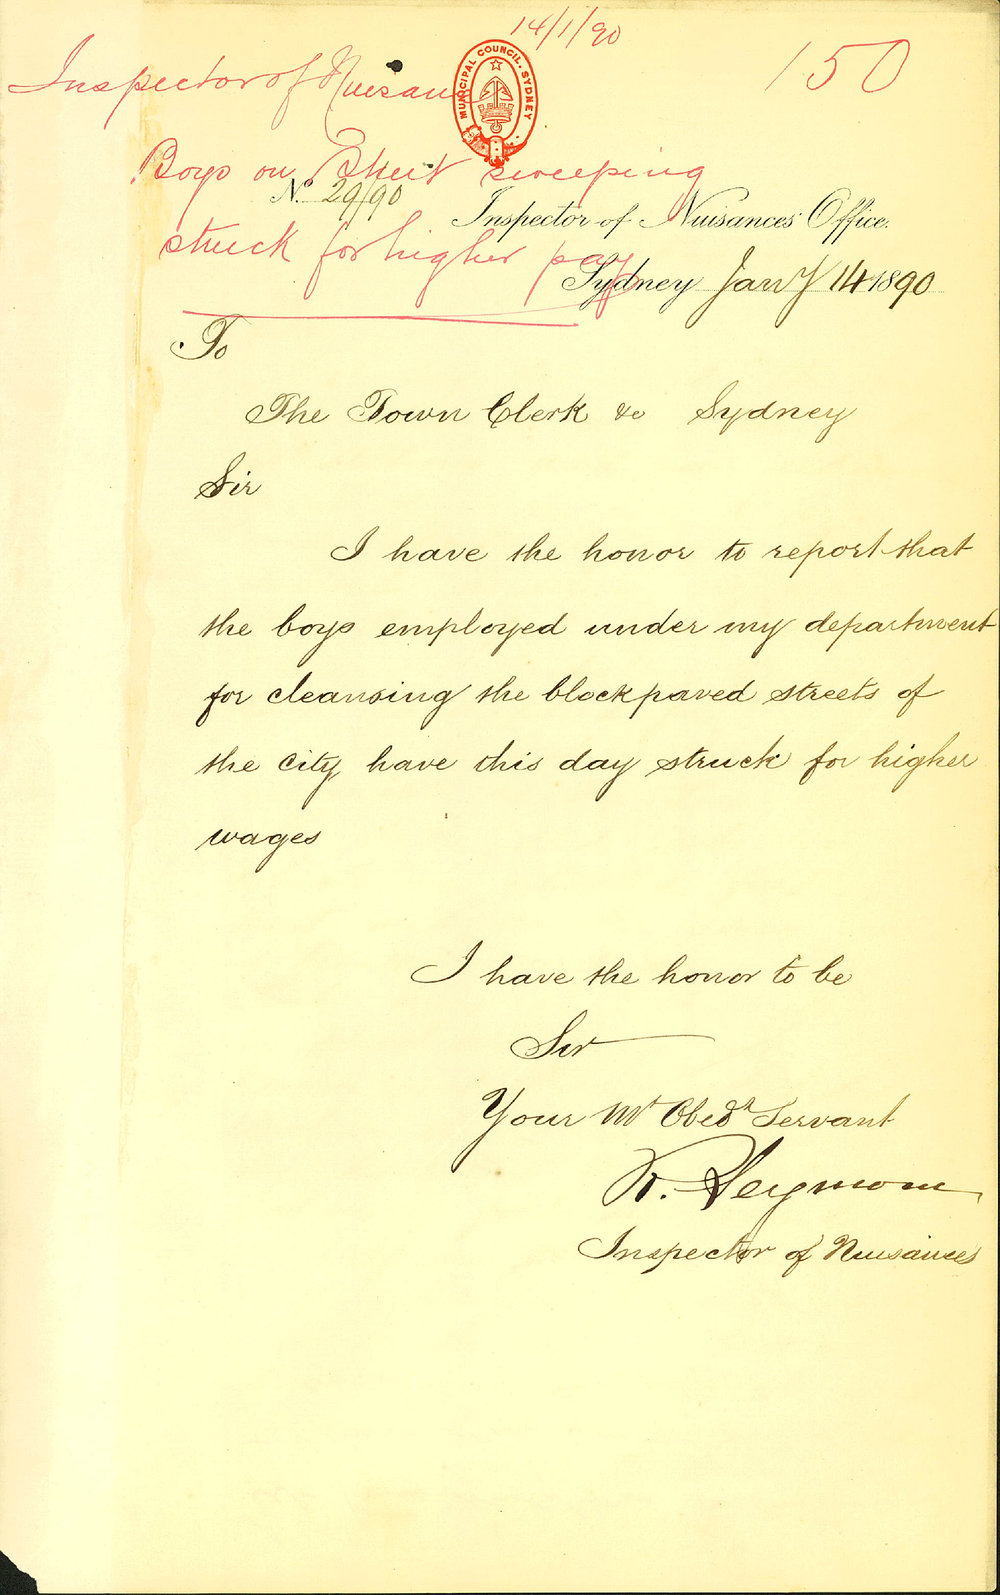 14/1/90
150
Inspector of Nuisances
MUNICIPAL COUNCIL. SYDNEY
Boys on Street sweeping
struck for higher pay
No. 29/90
Inspector of Nuisances' Office.
Sydney Jany 14 1890
To
The Town Clerk &c Sydney
Sir
I have the honor to report that
the boys employed under my department
for cleansing the blockpaved streets of
the city have this day struck for higher
wages
I have the honor to be
Sir
Your Mt Obedt Servant
R. Seymour
Inspector of Nuisances